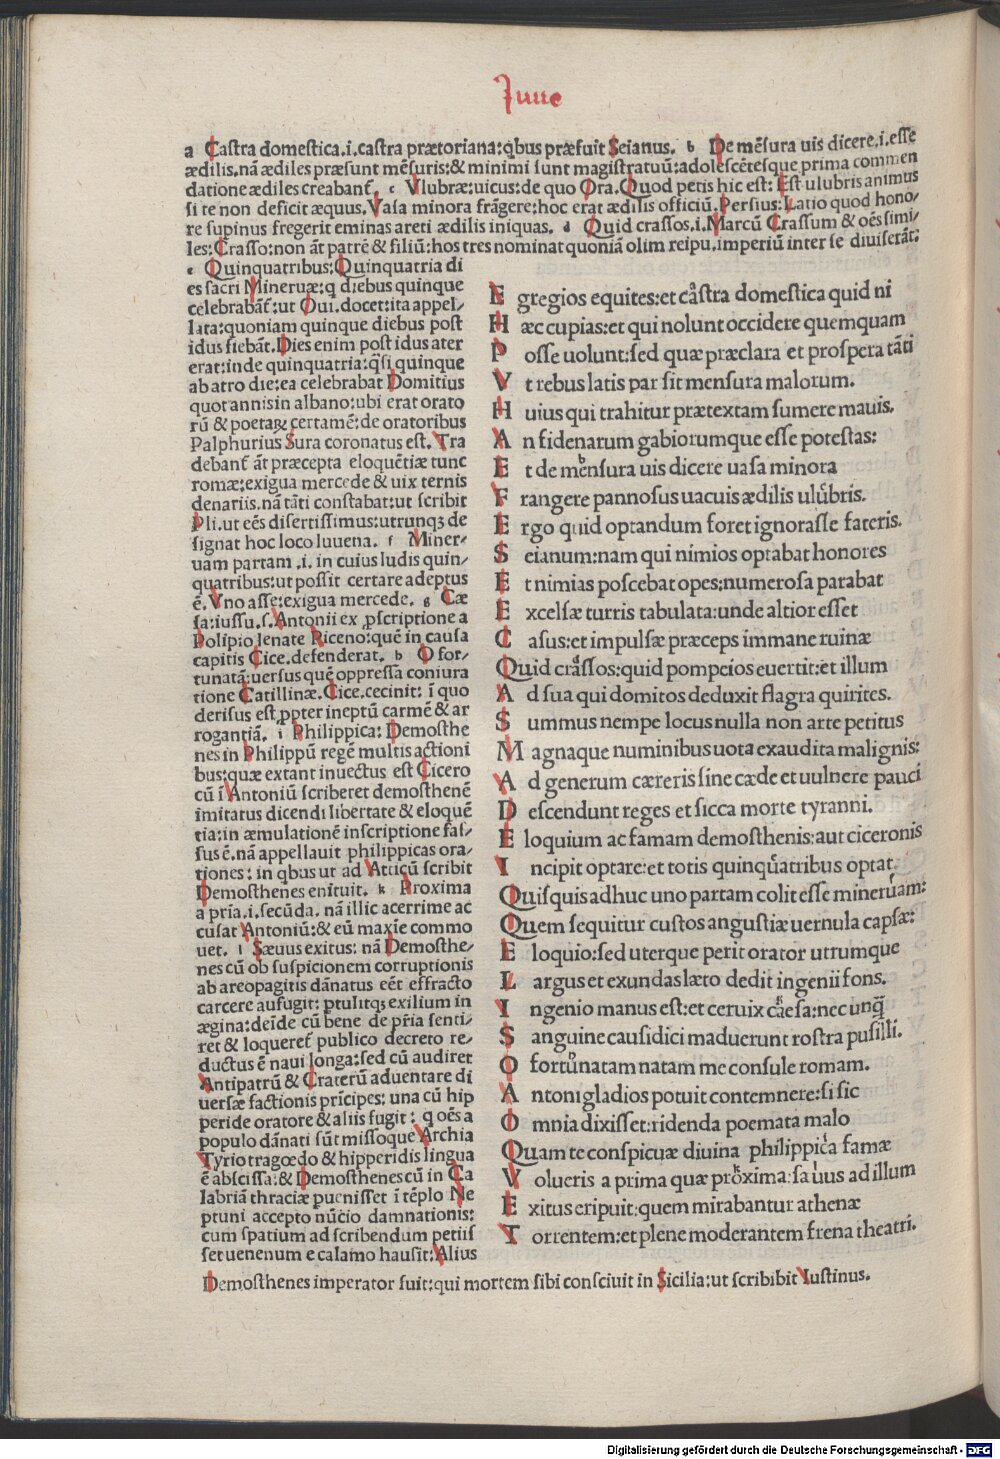 Iuue
a Castra domestica.i.castra prætoriana:qbus præfuit Seianus. b De mẽsura uis dicere.i.esse
ædilis.nã ædiles præsunt mẽsuris:& minimi sunt magistratuũ:adolescẽtesque prima commen
datione ædiles creabanť. c Vlubræ:uicus:de quo Ora.Quod petis hic est: Est ulubris animus
si te non deficit æquus.Vasa minora frãgere:hoc erat ædilis officiũ.Persius:Latio quod hono/
re supinus fregerit eminas areti ædilis iniquas. d Quid crassos.i.Marcũ Crassum & oẽs simi/
les:Crasso:non ãt patrẽ & filiũ:hos tres nominat quoniã olim reipu.imperiũ inter se diuiserãt.
e Quinquatribus:Quinquatria di
es sacri Mineruæ:q diebus quinque
celebrabanť:ut Oui.docet:ita appel/
lata:quoniam quinque diebus post
idus fiebãt.Dies enim post idus ater
erat:inde quinquatria:qsi quinque
ab atro die:ea celebrabat Domitius
quotannis in albano:ubi erat orato
rũ & poetaꝝ certamẽ:de oratoribus
Palphurius Sura coronatus est. Tra
debanť ãt præcepta eloquẽtiæ tunc
romæ:exigua mercede & uix ternis
denariis.nã tãti constabat:ut scribit
Pli.ut eẽs disertissimus:utrunqꝫ de
signat hoc loco Iuuena. f Miner/
uam partam .i. in cuius ludis quin/
quatribus:ut possit certare adeptus
ẽ.Vno asse:exigua mercede. g Cæ
sa:iussu.s.Antonii ex ꝓscriptione a
Polipio lenate Riceno:quẽ in causa
capitis Cice.defenderat. h O for/
tunatã:uersus quẽ oppressa coniura
tione Catillinæ.Cice.cecinit: ĩ quo
derisus est ꝓpter ineptũ carmẽ & ar
rogantiã. i Philippica: Demosthe
nes in Philippũ regẽ multis actioni
bus:quæ extant inuectus est Cicero
cũ ĩ Antoniũ scriberet demosthenẽ
imitatus dicendi libertate & eloquẽ
tia:in æmulationẽ inscriptione fas/
sus ẽ.nã appellauit philippicas ora/
tiones: in qbus ut ad Atticũ scribit
Demosthenes enituit. k Proxima
a pria.i.secũda. nã illic acerrime ac
cusat Antoniũ:& eũ maxĩe commo
uet. l Sæuus exitus: nã Demosthe/
nes cũ ob suspicionem corruptionis
ab areopagitis dãnatus eẽt effracto
carcere aufugit: ꝓtulitqꝫ exilium in
ægina:deĩde cũ bene de pr̃ia senti/
ret & loqueret̃ publico decreto re/
ductus ẽ naui longa:sed cũ audiret
Antipatrũ & Craterũ aduentare di
uersæ factionis prĩcipes: una cũ hip
peride oratore & aliis fugit: q oẽs a
populo dãnati sũt missoque Archia
Tyrio tragœdo & hipperidis lingua
ẽ abscissa:& Demosthenes cũ in Ca
labriã thraciæ puenisset ĩ tẽplo Ne
ptuni accepto nũcio damnationis:
cum spatium ad scribendum petiis
set uenenum e calamo hausit:Alius
Demosthenes imperator fuit:qui mortem sibi consciuit in Sicilia:ut scribibit Iustinus.
E gregios equites:et caͣstra domestica quid ni
H æc cupias:et qui nolunt occidere quemquam
P osse uolunt:sed quæ præclara et prospera tãti
V t rebus latis par sit mensura malorum.
H uius qui trahitur prætextam sumere mauis.
A n fidenarum gabiorumque esse potestas:
E t de mᵇensura uis dicere uasa minora
F rangere pannosus uacuis ædilis ulᶜubris.
E rgo quid optandum foret ignorasse fateris.
S eianum:nam qui nimios optabat honores
E t nimias poscebat opes:numerosa parabat
E xcelsæ turris tabulata:unde altior esset
C asus:et impulsæ præceps immane ruinæ
Quid crᵈassos:quid pompeios euertit:et illum
A d sua qui domitos deduxit flagra quirites.
S ummus nempe locus nulla non arte petitus
M agnaque numinibus uota exaudita malignis:
A d generum cæreris sine cæde et uulnere pauci
D escendunt reges et sicca morte tyranni.
E loquium ac famam demosthenis:aut ciceronis
I ncipit optare:et totis quinqᵉuatribus optat.
Quisquis adhuc uno partam colit esse minerᶠuam:
Quem sequitur custos angustiæ uernula capsæ:
E loquio:sed uterque perit orator utrumque
L argus et exundas læto dedit ingenii fons.
I ngenio manus est:et ceruix cᵍaesa:nec unq̃
S anguine causidici maduerunt rostra pusilli.
O fortʰunatam natam me consule romam.
A ntoni gladios potuit contemnere:si sic
O mnia dixisset:ridenda poemata malo
Quam te conspicuæ diuina philippicⁱa famæ
V olueris a prima quæ prᵏoxima:sæˡuus ad illum
E xitus eripuit:quem mirabantur athenæ
T orrentem:et plene moderantem frena theatri.
Digitalisierung gefördert durch die Deutsche Forschungsgemeinschaft - DFG